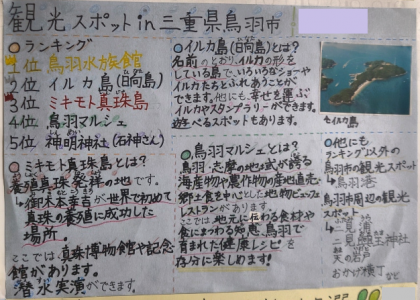 観光スポットin三重県鳥羽市
○ランキング
1位 鳥羽水族館
2位 イルカ島(日向島)
3位 ミキモト真珠島
4位 鳥羽マルシェ
5位 神明神社(石神さん)
○イルカ島(日向島)とは?
名前のとおり、イルカの形を
している島で、いろいろなショーや
イルカたちとふれあうことが
できます。他にも、幸せを運ぶ
イルカやスタンプラリーができます。
遊べるスポットもあります。
イルカ島
○ミキモト真珠島とは?
養殖真珠発祥の地です。
↳御木本幸吉が世界で初めて
真珠の養殖に成功した
場所。
ここでは、真珠博物館や記念
館があります。
潜水実演ができます。
○鳥羽マルシェとは?
鳥羽・志摩の地域が誇る
海産物や農作物の産地直売・
郷土食を中心とした地物ビュッフェ
レストランがあります。
ここでは地元に伝わる食材や
食にまつわる知恵、鳥羽で
育まれた健康レシピを
存分に楽しめます!
○他にも
ランキング以外の
鳥羽市の観光スポット
↳鳥羽港
鳥羽市周辺の観光
スポット
↳二見浦
二見興玉神社
天の岩戸
おかげ横丁 など